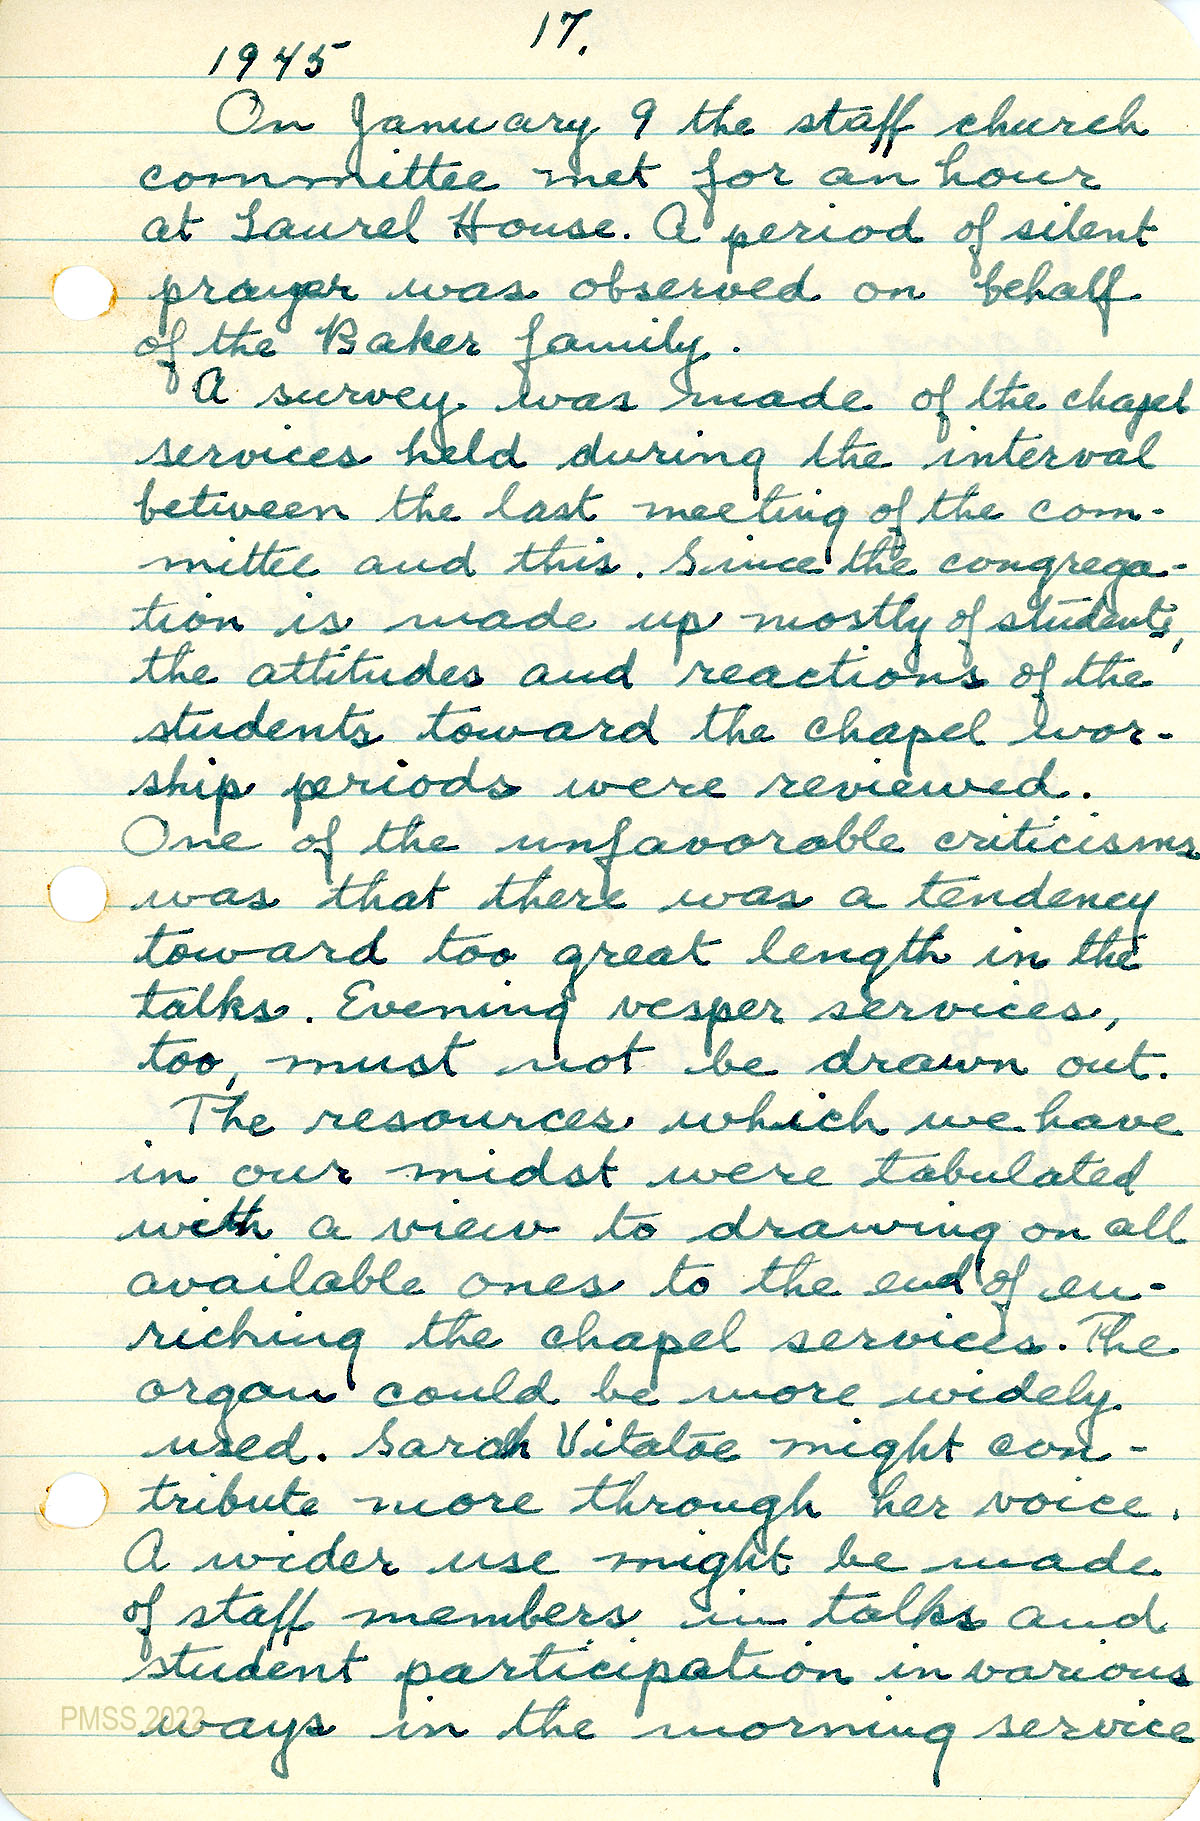 17.
1945
On January 9 the staff church
committee met for an hour
at Laurel House. A period of silent
prayer was observed on behalf
of the Baker family.
A survey was made of the chapel
services held during the interval
between the last meeting of the com-
mittee and this. Since the congrega-
tion is made up mostly of students,
the attitudes and reactions of the
students toward the chapel wor-
ship periods were reviewed.
One of the unfavorable criticisms
was that there was a tendency
toward too great length in the
talks. Evening vesper services,
too, must not be drawn out.
The resources which we have
in our midst were tabulated
with a view to drawing on all
available ones to the end of en-
riching the chapel services. The
organ could be more widely
used. Sarah Vitatoe might con-
tribute more through her voice.
A wider use might be made
of staff members in talks and
student participation in various
ways in the morning service
PMSS 2022